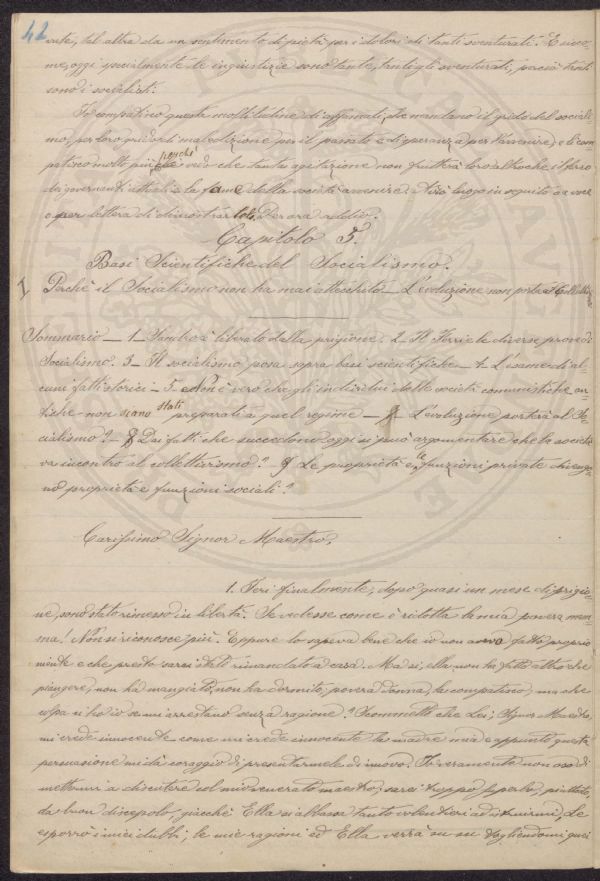 42
rete, tal altra da un sentimento di pietà per i dolori di tanti sventurati. E sicco-
me, oggi specialmente le ingiustizie sono tante, tanti gli sventurati, perciò tanti
sono i socialisti.
Io compatisco questa moltitudine di affamati, che mandano il grido del sociali-
mo, per loro grido di maledizione per il passato e di speranza per l'avvenire, e li com-
patisco molto più poichè vedo che tanta agitazione non frutterà loro altro che il ferro
dei governanti attuali e la fame della società avvenire. Avrò luogo in seguito o a voce
o per lettera di dimostrartelo. Per ora addio.
Capitolo 3.
Basi Scientifiche del Socialismo.
I Perchè il Socialismo non ha mai attecchito _ L'evoluzione non porta al Colletti
Sommario _ 1_ Sandro è liberato dalla prigione. 2_ Il Ferri e le diverse prove di
Socialismo. 3_ Il socialismo posa sopra basi scientifiche _ 4_ L'esame di al-
cuni fatti storici _ 5. Non è vero che gli individui delle società comunistiche an-
tiche non siano stati preparati a quel regime _ L'evoluzione porterà al So-
cialismo? _ Dai fatti che succedono oggi si può argomentare che la società
va incontro al collettivismo? _ Le proprietà e le funzioni private divengo-
no proprietà e funzioni sociali?
Carissimo Signor Maestro,
1. Ieri finalmente, dopo quasi un mese di prigio-
ne, sono stato rimesso in libertà. Se vedesse come è ridotta la mia povera mam-
ma! Non si riconosce più. Eppure lo sapeva bene che io non avevo fatto proprio
niente e che presto sarei stato rimandato a casa. Ma sì, ella non ha fatto altro che
piangere, non ha mangiato, non ha dormito, povera donna, la compatisco, ma che
colpa ci ho io se mi arrestano senza ragione? Scommetto che Lei, Signor Maestro,
mi crede innocente come mi crede innocente la madre mia e appunto questa
persuasione mi dà coraggio di presentarmele di nuovo. Io veramente non oso di
mettermi a discutere col mio venerato maestro, sarei troppo superbo, piuttosto,
da buon discepolo, giacchè Ella si abbassa tanto volentieri ad istruirmi, Le
esporrò i miei dubbi, le mie ragioni ed Ella verrà su su togliendomi quei